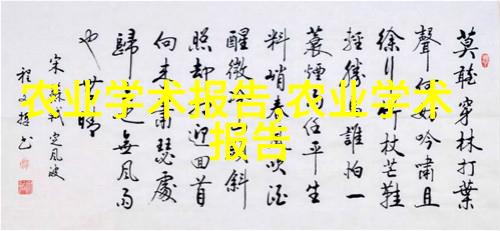 农业学术报告,农业学术
报告
莫聽穿林打葉
聲何妨吟嘯且
徐行竹杖芒鞋
輕勝誰怕一
蓑煙雨任平生
料峭春吹酒
醒微斜
照却迎回首
向來蕭瑟處
歸無風雨
也晴
宋蘇軾定風波